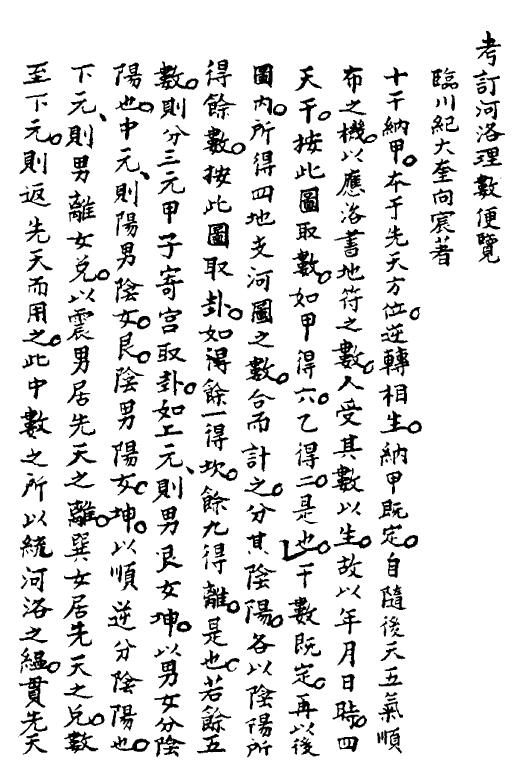 考訂河洛理數便覽
臨川紀大奎向宸著
十干納甲。本于先天方位。逆轉相生。納甲既定。自隨後天五氣順
布之機。以應洛書地符之數。人受其數以生。故以年月日時。四
天干。按此圖取數。如甲得六。乙得二。是也。干數既定。再以後
圖內。所得四地支河圖之數。合而計之。分其陰陽。各以陰陽所
得餘數。按此圖取卦。如得餘一得坎。餘九得離。是也。若餘五
數。則分三元甲子寄宮取卦。如上元、則男艮女坤。以男女分陰
陽也。中元、則陽男陰女。艮。陰男陽女。坤。以順逆分陰陽也。
下元、則男離女兌。以震男居先天之離。巽女居先天之兌。數
至下元。則返先天而用之。此中數之所以統河洛之緼。貫先天